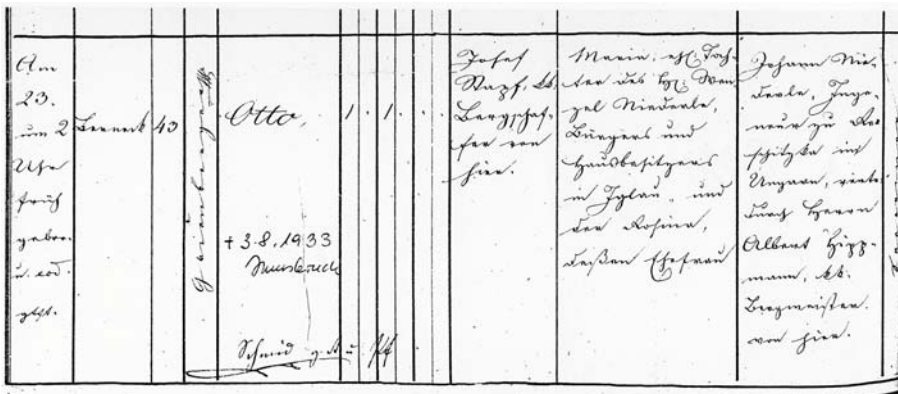 Am
23.
um 2
Uhr
früh
gebor.
u. eod.
gtft.
Berneck
43
Otto,
1 . 1 . . .
† 3.8.1933
Innsbruck
Schmid
Josef
Stapf, kk.
Bergschaf-
fer von
hier.
Maria, ehl. Toch-
ter des H: Wen-
zel Niederle,
Bürgers und
Hausbesitzers
in Iglau, und
der Rosina,
deßen Ehefrau
Johann Nie-
derle, Inge-
neur zu
in
Ungarn,
durch Herrn
Albert Hipp-
mann, kk.
Bergmeister
von hier.